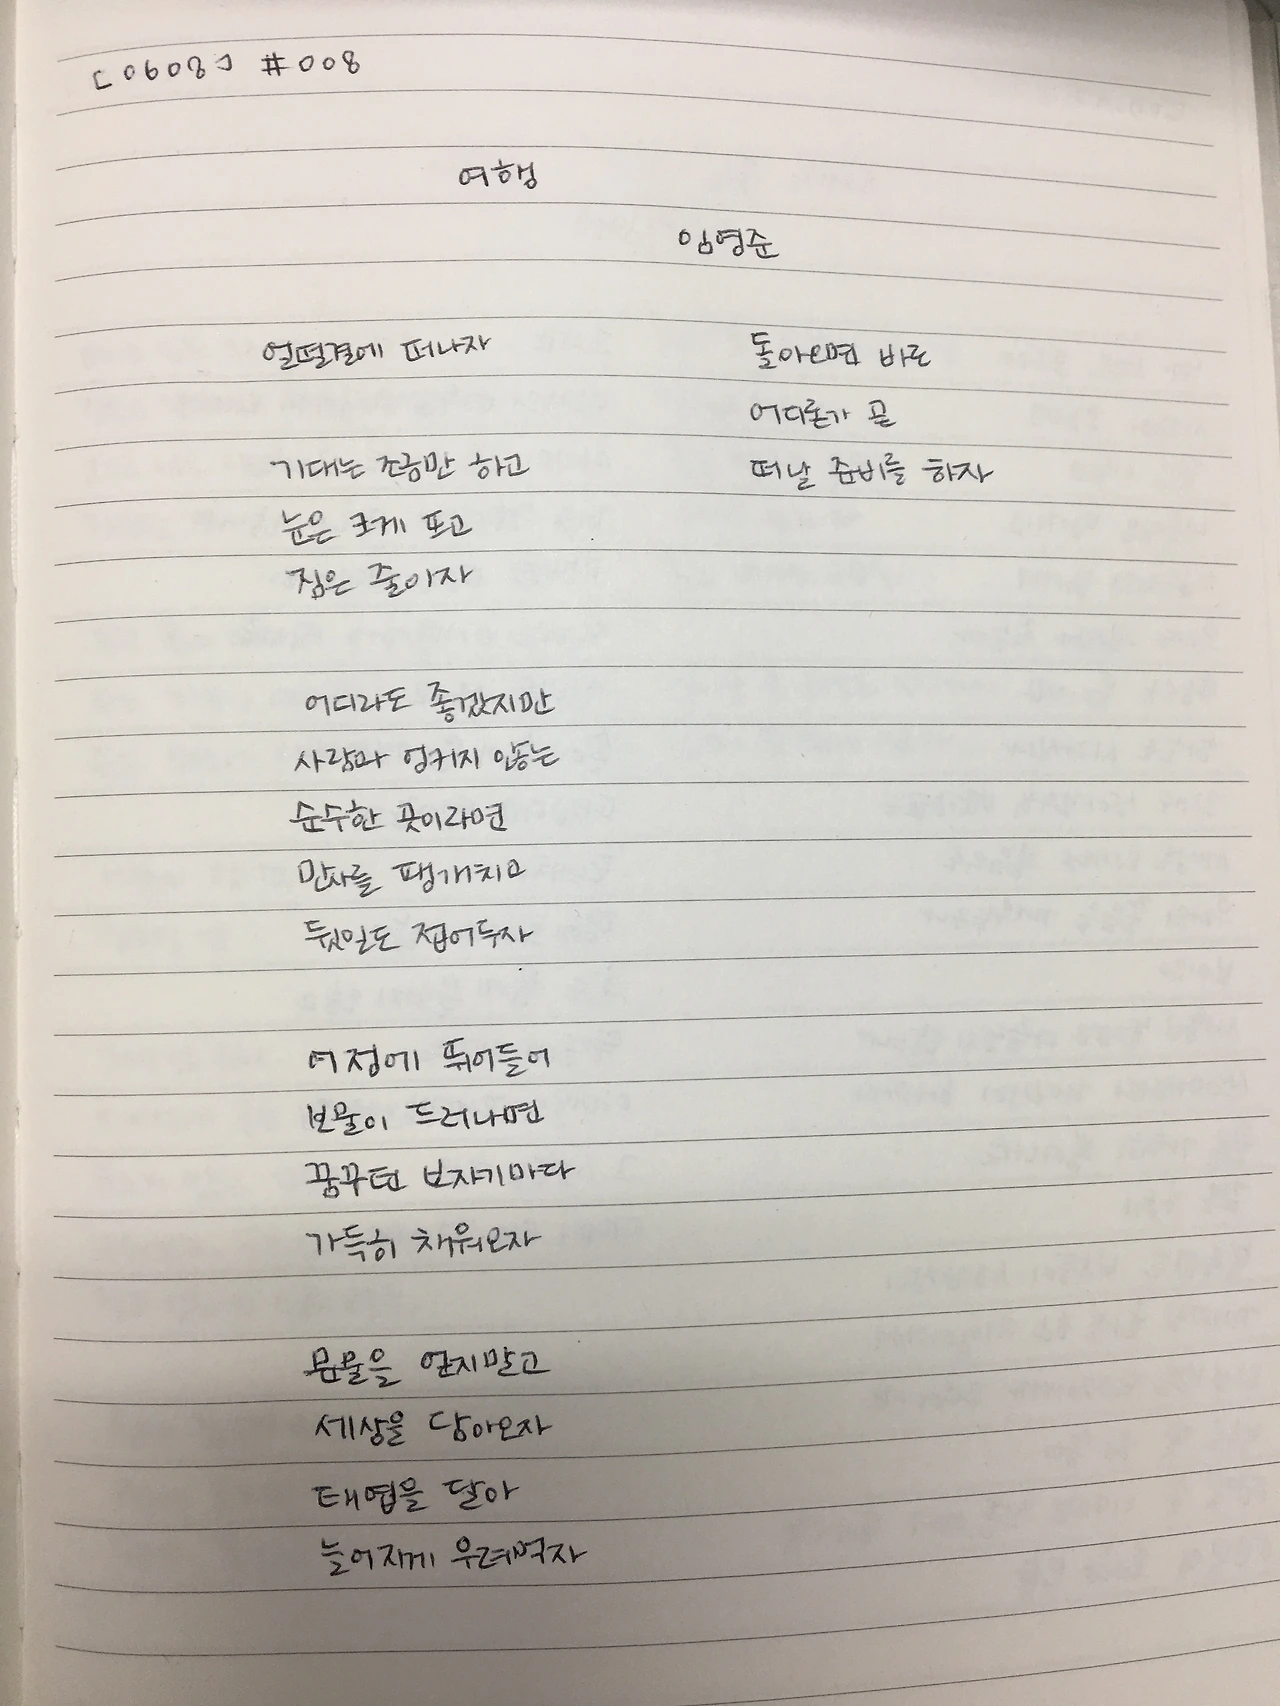 [0608] #008
여행
임영준
얼떨결에 떠나자
기대는 조금만 하고
눈은 크게 뜨고
짐은 줄이자
어디라도 좋겠지만
사람과 엉키지 않는
순수한 곳이라면
만사를 팽개치고
뒷일도 접어두자
여정에 뛰어들어
보물이 드러나면
꿈꾸던 보자기마다
가득히 채워오자
문물을 얻지말고
세상을 담아오자
태엽을 달아
늘어지게 우려먹자
돌아오면 바로
어디론가 곧
떠날 준비를 하자